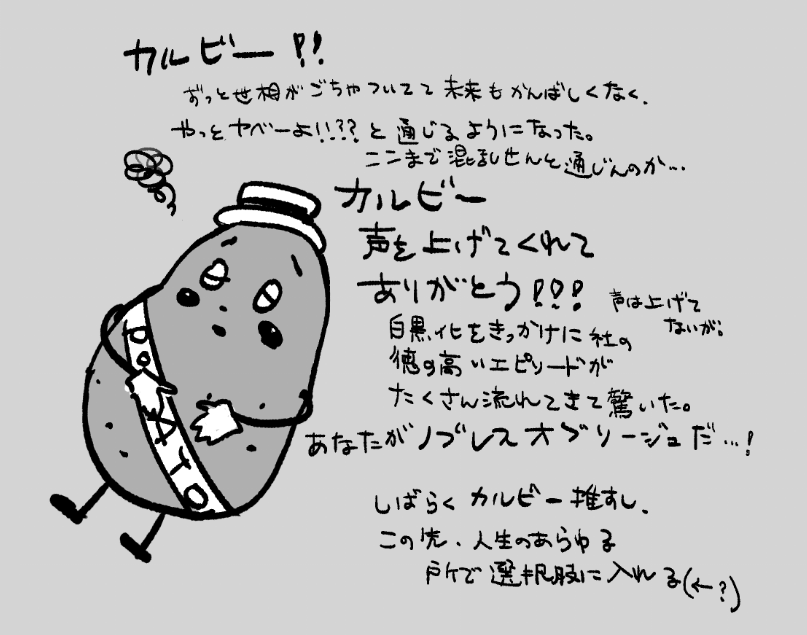 カルビー!!
ずっと世相がごちゃついてて未来もかんばしくなく、
やっとヤベーよ!!??と通じるようになった。
ここまで混乱せんと通じんのか…
カルビー
声を上げてくれて
ありがとう!!!
声は上げて
ないが。
白黒化をきっかけに社の
徳の高いエピソードが
たくさん流れてきて驚いた。
あなたがノブレスオブリージュだ…!
しばらくカルビー推すし、
この先、人生のあらゆる
所で選択肢に入れる(←?)
POTATO